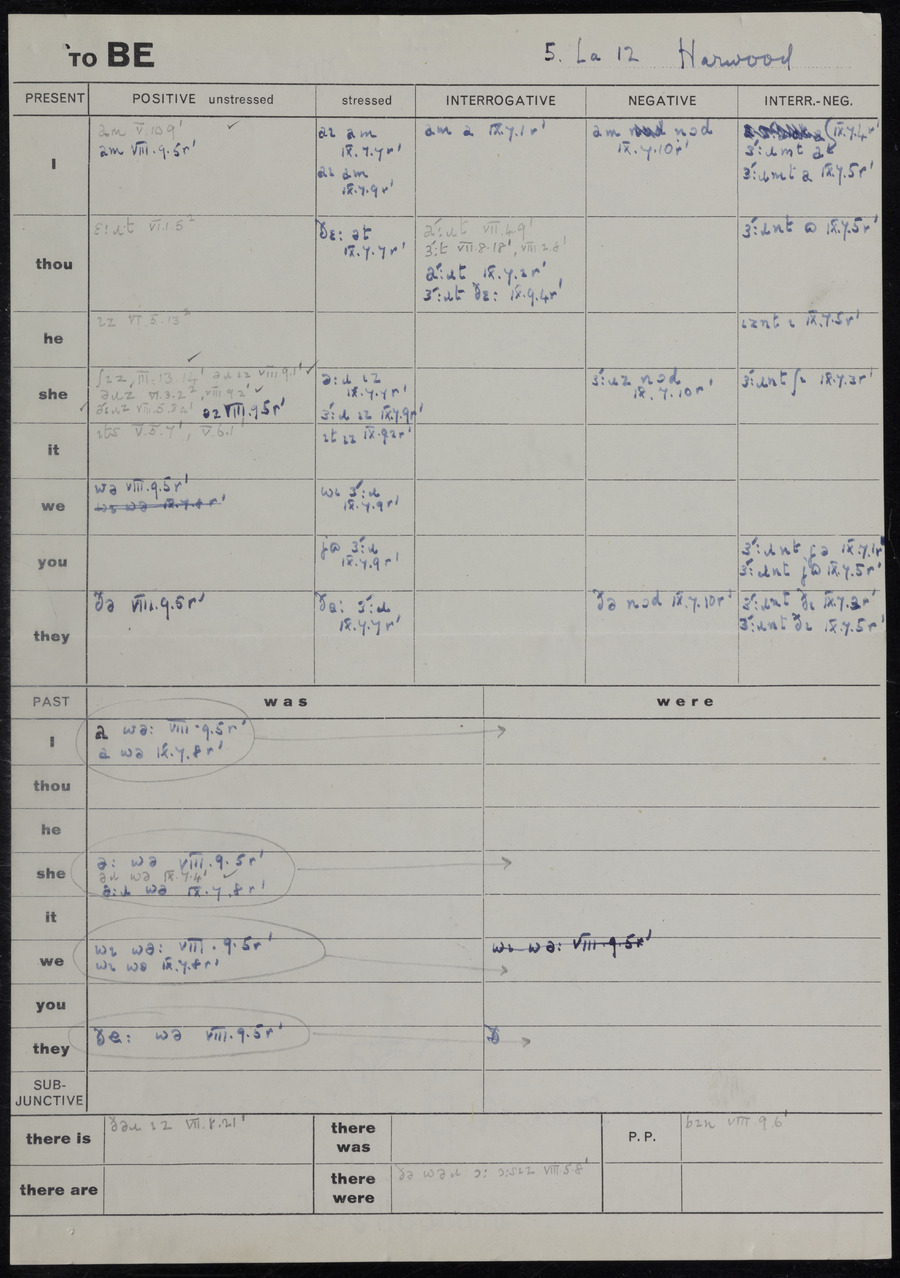 TO BE
5. La 12 Harwood
PRESENT POSITIVE unstressed stressed INTERROGATIVE NEGATIVE INTERR.-NEG.
I
am VIII.9.5r'
aɪ am
IX.7.7r'
aɪ am
IX.7.9r'
am a IX.7.1r'
am nɒd
IX.7.10r'
IX.7.4r'
ɜ:ɹmt a
ɜ:ɹmt a IX.7.5r'
thou
ɛ:ɹt VI.1.5²
ðɛ: ət
IX.7.7r'
ɜ:t VII.8.18', VIII.2.8'
IX.7.2r'
ɜ:ɹt ðɛ: IX.9.4r'
IX.7.5r'
he
ɪz VI.5.13²
ɪznt ɪ IX.7.5r'
she
ʃɪz, III.13.14' VIII.9.1'
VI.3.2², VIII.9.2'
əz VIII.9.5r'
ə:ɹ ɪz
IX.7.7r'
ɜ:ɹ ɪz IX.7.9r'
ɜ:ɹz nɒd
IX.7.10r'
ɜ:ɹnt ʃɪ IX.7.2r'
it
ɪts V.5.7', V.6.1'
ɪt ɪz IX.9.2r'
we
wə VIII.9.5r'
wɪ ɜ:ɹ
IX.7.9r'
you
ɜ:ɹ
IX.7.9r'
ɜ:ɹnt jə IX.7.1r'
IX.7.5r'
they
ðə VIII.9.5r'
ɜ:ɹ
IX.7.7r'
ðə nɒd IX.7.10r'
ɜ:ɹnt ðɪ IX.7.2r'
ɜ:ɹnt ðɪ IX.7.5r'
PAST was were
I
a wə: VIII.9.5r'
a wə IX.7.8r'
thou
he
she
ə: wə VIII.9.5r'
əɹ wə IX.7.4'
ə:ɹ wə IX.7.8r'
it
we
wɪ wə: VIII.9.5r'
wɪ wə IX.7.8r'
wɪ wə: VIII.9.5r'
you
they
wə VIII.9.5r'
ð
SUB-
JUNCTIVE
there is
ðəɹ ɪz VII.8.21'
there
was
P.P.
bɪn VIII.9.6'
there are
there
were
VIII.5.8'